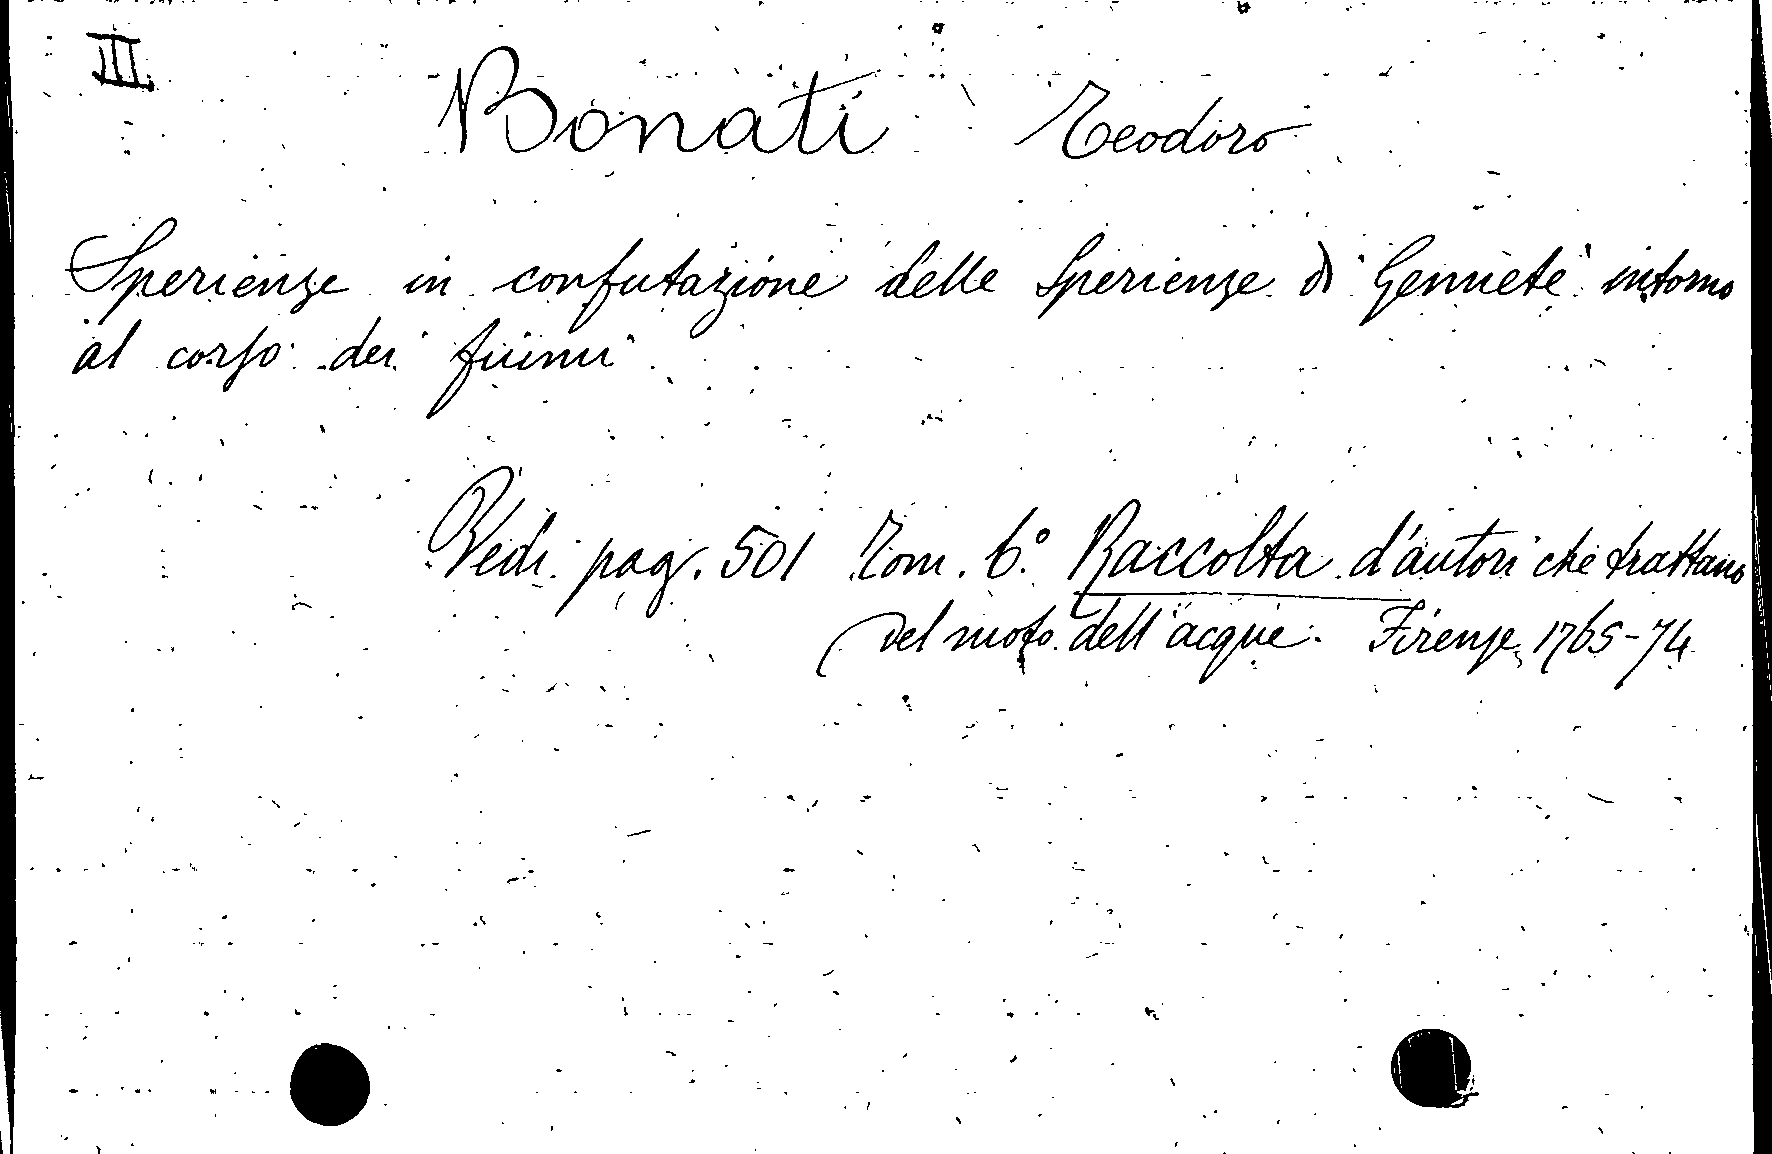 III
Bonati Teodoro
Sperienze in confutazione delle Sperienze di Genneté intorno
al corso dei fiumi
Vedi pag. 501 Tom. 6° Raccolta d'autori che trattano
del moto dell'acque. Firenze, 1765-74